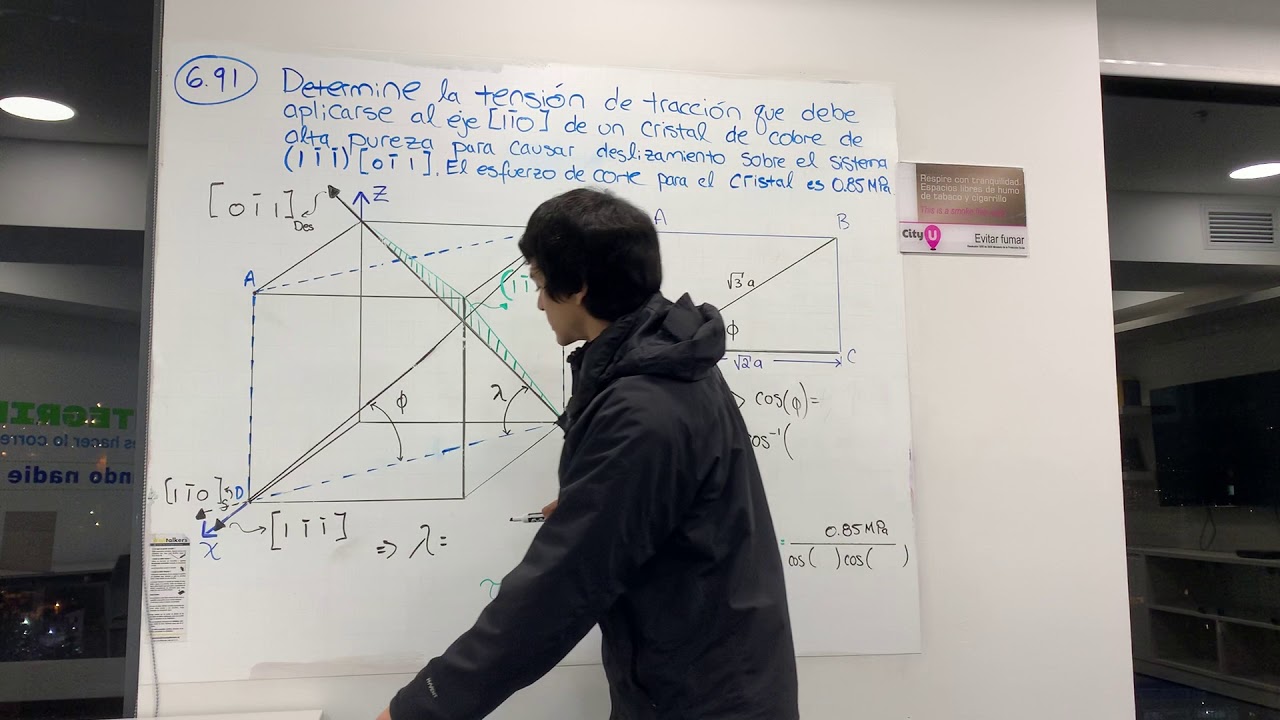 6.91
Determine la tensión de tracción que debe
aplicarse al eje [11̄0] de un cristal de cobre de
alta pureza para causar deslizamiento sobre el sistema
(11̄1̄)[01̄1]. El esfuerzo de corte para el cristal es 0.85 MPa
[01̄1]
Des
Z
A
A
B
(11̄
√3 a
ϕ
√2 a
C
ϕ
λ
cos(ϕ)=
os⁻¹(
[11̄0]
D
[11̄1̄]
x
⇒ λ=
τ
= 0.85 MPa
cos( )cos( )
Respire con tranquilidad.
Espacios libres de humo
de tabaco y cigarrillo
This is a smoke
City U
Evitar fumar
TEGRI
es hacer lo corre
ando nadie
talkers